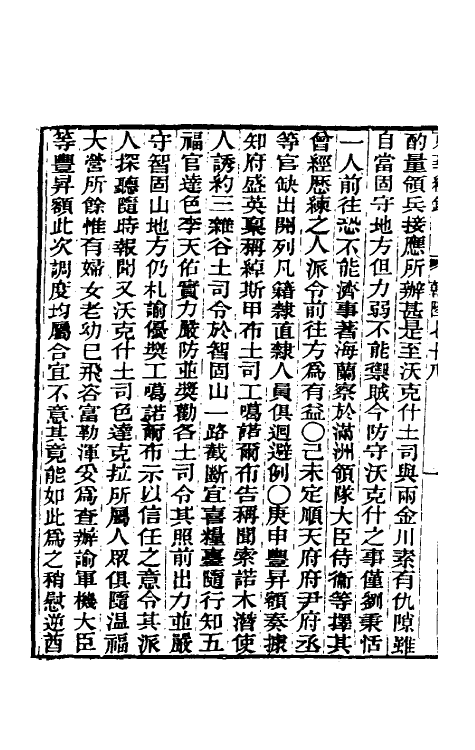 酌量領兵接應所辦甚是至沃克什土司與兩金川素有仇隙雖
自當固守地方但力弱不能禦賊今防守沃克什之事僅劉秉恬
一人前往恐不能濟事著海蘭察於滿洲領隊大臣侍衞等擇其
曾經歷練之人派令前往方爲有益〇己未定順天府府尹府丞
等官缺出開列凡籍隸直隸人員俱迴避例〇庚申豐昇額奏據
知府盛英稟稱綽斯甲布土司工噶諾爾布告稱聞索諾木潛使
人誘約三雜谷土司令於智固山一路截斷宜喜糧臺隨行知五
福官達色李天佑實力嚴防並獎勸各土司令其照前出力並嚴
守智固山地方仍札諭優獎工噶諾爾布示以信任之意令其派
人探聽隨時報聞又沃克什土司色達克拉所屬人眾俱隨溫福
大營所餘惟有婦女老幼已飛咨富勒渾妥爲查辦諭軍機大臣
等豐昇額此次調度均屬合宜不意其竟能如此爲之稍慰逆酋